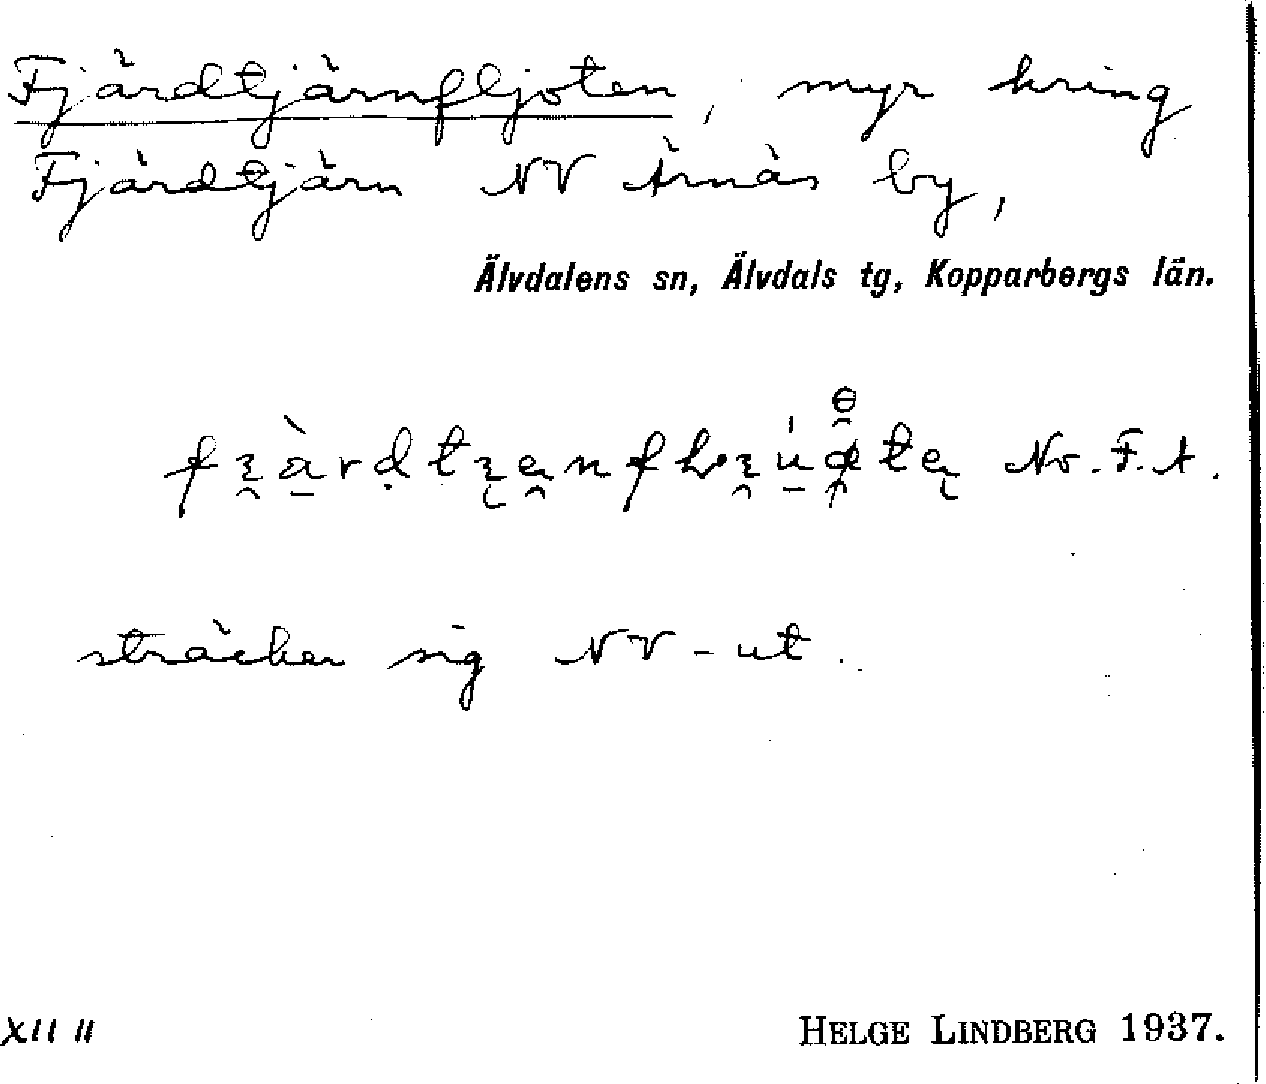 Fjärdtjärnfljoten, myr kring
Fjärdtjärn NV Ärnäs by,
Älvdalens sn, Älvdals tg, Kopparbergs län.
No. F. A.
sträcker sig NV-ut.
XII II
HELGE LINDBERG 1937.